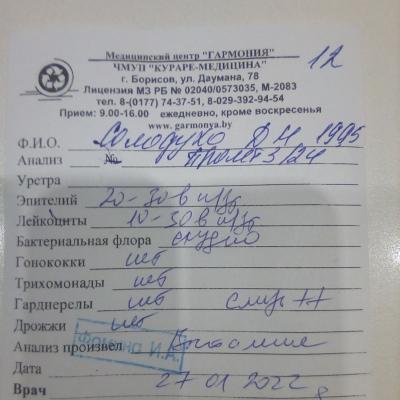 Медицинский центр "ГАРМОНИЯ"
ЧМУП "КУРАРЕ-МЕДИЦИНА"
г. Борисов, ул. Даумана, 78
Лицензия МЗ РБ № 02040/0573035, М-2083
тел. 8-(0177) 74-37-51, 8-029-392-94-54
Прием: 9.00-16.00 ежедневно, кроме воскресенья
www.garmonya.by
12
Ф.И.О. Солодухо Д Н 1995
Анализ №
Уретра
Эпителий 20-30 в п/зр
Лейкоциты 10-30 в п/зр
Бактериальная флора скудно
Гонококки нет
Трихомонады нет
Гарднерелы нет слизь ++
Дрожжи нет
Анализ произвел Фомина И.А.
Дата
Врач 27 01 2022